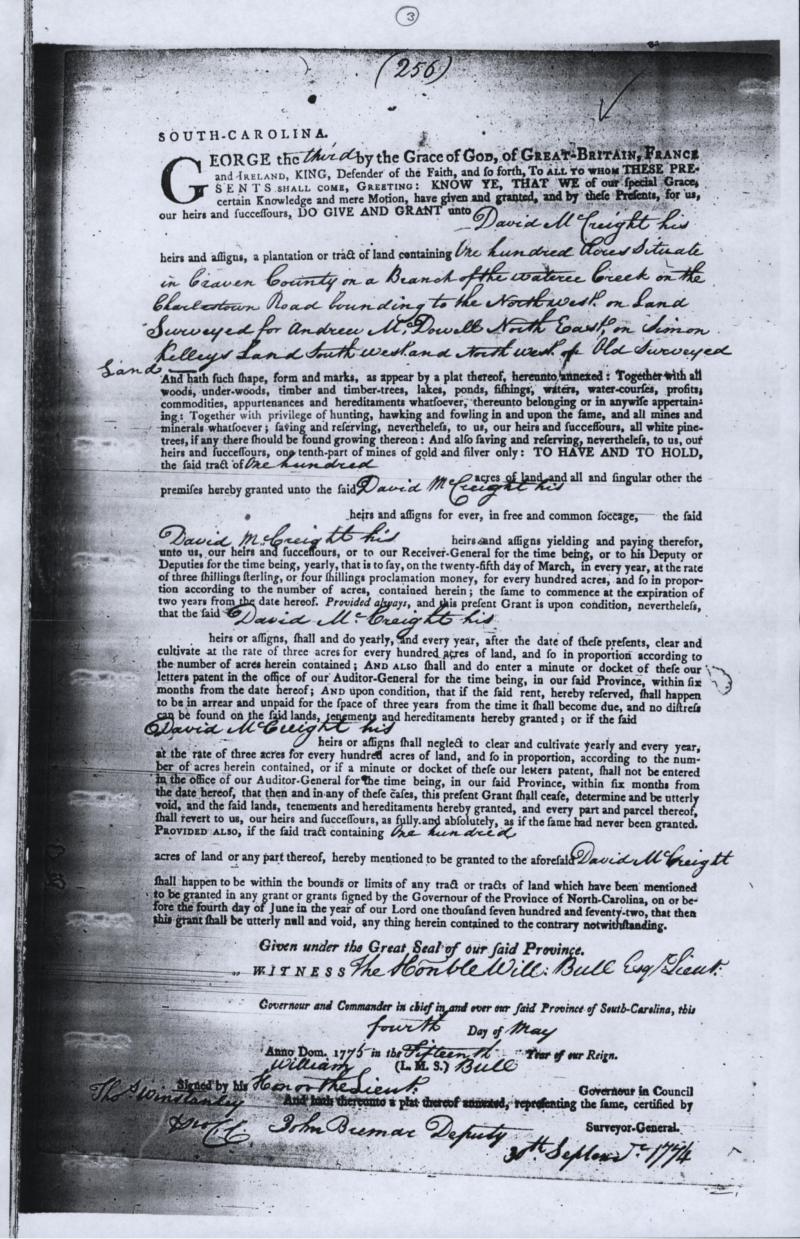 3
(256)
SOUTH-CAROLINA.
GEORGE the third by the Grace of GOD, of GREAT-BRITAIN, FRANCE
and IRELAND, KING, Defender of the Faith, and ſo forth, To ALL TO WHOM THESE PRE-
SENTS SHALL COME, GREETING: KNOW YE, THAT WE of our ſpecial Grace,
certain Knowledge and mere Motion, have given and granted, and by theſe Preſents, for us,
our heirs and ſucceſſours, DO GIVE AND GRANT unto David McCreight his
heirs and aſſigns, a plantation or tract of land containing One hundred Acres Situate
in Craven County on a Branch of the Wateree Creek on the
Charlestown Road bounding to the North west on Land
Surveyed for Andrew McDowell North East on Simon
Kelleys Land South West and North west of Old Surveyed
Land
And hath ſuch ſhape, form and marks, as appear by a plat thereof, hereunto annexed: Together with all
woods, under-woods, timber and timber-trees, lakes, ponds, fiſhings, waters, water-courſes, profits,
commodities, appurtenances and hereditaments whatſoever, thereunto belonging or in anywiſe appertain-
ing: Together with privilege of hunting, hawking and fowling in and upon the ſame, and all mines and
minerals whatſoever; ſaving and reſerving, nevertheleſs, to us, our heirs and ſucceſſours, all white pine-
trees, if any there ſhould be found growing thereon: And alſo ſaving and reſerving, nevertheleſs, to us, our
heirs and ſucceſſours, one tenth-part of mines of gold and ſilver only: TO HAVE AND TO HOLD,
the ſaid tract of One hundred
acres of land and all and ſingular other the
premiſes hereby granted unto the ſaid David McCreight his
heirs and aſſigns for ever, in free and common ſoccage, the ſaid
David McCreight his heirs and aſſigns yielding and paying therefor,
unto us, our heirs and ſucceſſours, or to our Receiver-General for the time being, or to his Deputy or
Deputies for the time being, yearly, that is to ſay, on the twenty-fifth day of March, in every year, at the rate
of three ſhillings ſterling, or four ſhillings proclamation money, for every hundred acres, and ſo in propor-
tion according to the number of acres, contained herein; the ſame to commence at the expiration of
two years from the date hereof. Provided always, and this preſent Grant is upon condition, nevertheleſs,
that the ſaid David McCreight his
heirs or aſſigns, ſhall and do yearly, and every year, after the date of theſe preſents, clear and
cultivate at the rate of three acres for every hundred acres of land, and ſo in proportion according to
the number of acres herein contained; AND ALSO ſhall and do enter a minute or docket of theſe our
letters patent in the office of our Auditor-General for the time being, in our ſaid Province, within ſix
months from the date hereof; AND upon condition, that if the ſaid rent, hereby reſerved, ſhall happen
to be in arrear and unpaid for the ſpace of three years from the time it ſhall become due, and no diſtreſs
can be found on the ſaid lands, tenements and hereditaments hereby granted; or if the ſaid
David McCreight his
heirs or aſſigns ſhall neglect to clear and cultivate yearly and every year,
at the rate of three acres for every hundred acres of land, and ſo in proportion, according to the num-
ber of acres herein contained, or if a minute or docket of theſe our letters patent, ſhall not be entered
in the office of our Auditor-General for the time being, in our ſaid Province, within ſix months from
the date hereof, that then and in any of theſe caſes, this preſent Grant ſhall ceaſe, determine and be utterly
void, and the ſaid lands, tenements and hereditaments hereby granted, and every part and parcel thereof,
ſhall revert to us, our heirs and ſucceſſours, as fully and abſolutely, as if the ſame had never been granted.
PROVIDED ALSO, if the ſaid tract containing One hundred
acres of land or any part thereof, hereby mentioned to be granted to the aforeſaid David McCreight
ſhall happen to be within the bounds or limits of any tract or tracts of land which have been mentioned
to be granted in any grant or grants ſigned by the Governour of the Province of North-Carolina, on or be-
fore the fourth day of June in the year of our Lord one thouſand ſeven hundred and ſeventy-two, that then
this grant ſhall be utterly null and void, any thing herein contained to the contrary notwithſtanding.
Given under the Great Seal of our ſaid Province.
WITNESS The Honble Will: Bull Esqr Lieut
Governour and Commander in chief in and over our ſaid Province of South-Carolina, this
fourth Day of May
Anno Dom. 1775 in the Fifteenth Year of our Reign.
William (L. M. S.) Bull
Signed by his Honor the Lieut Governour in Council
Thos Winstanley And hath thereunto a plat thereof annexed, repreſenting the ſame, certified by
John Bremar Deputy Surveyor-General.
30th 1774